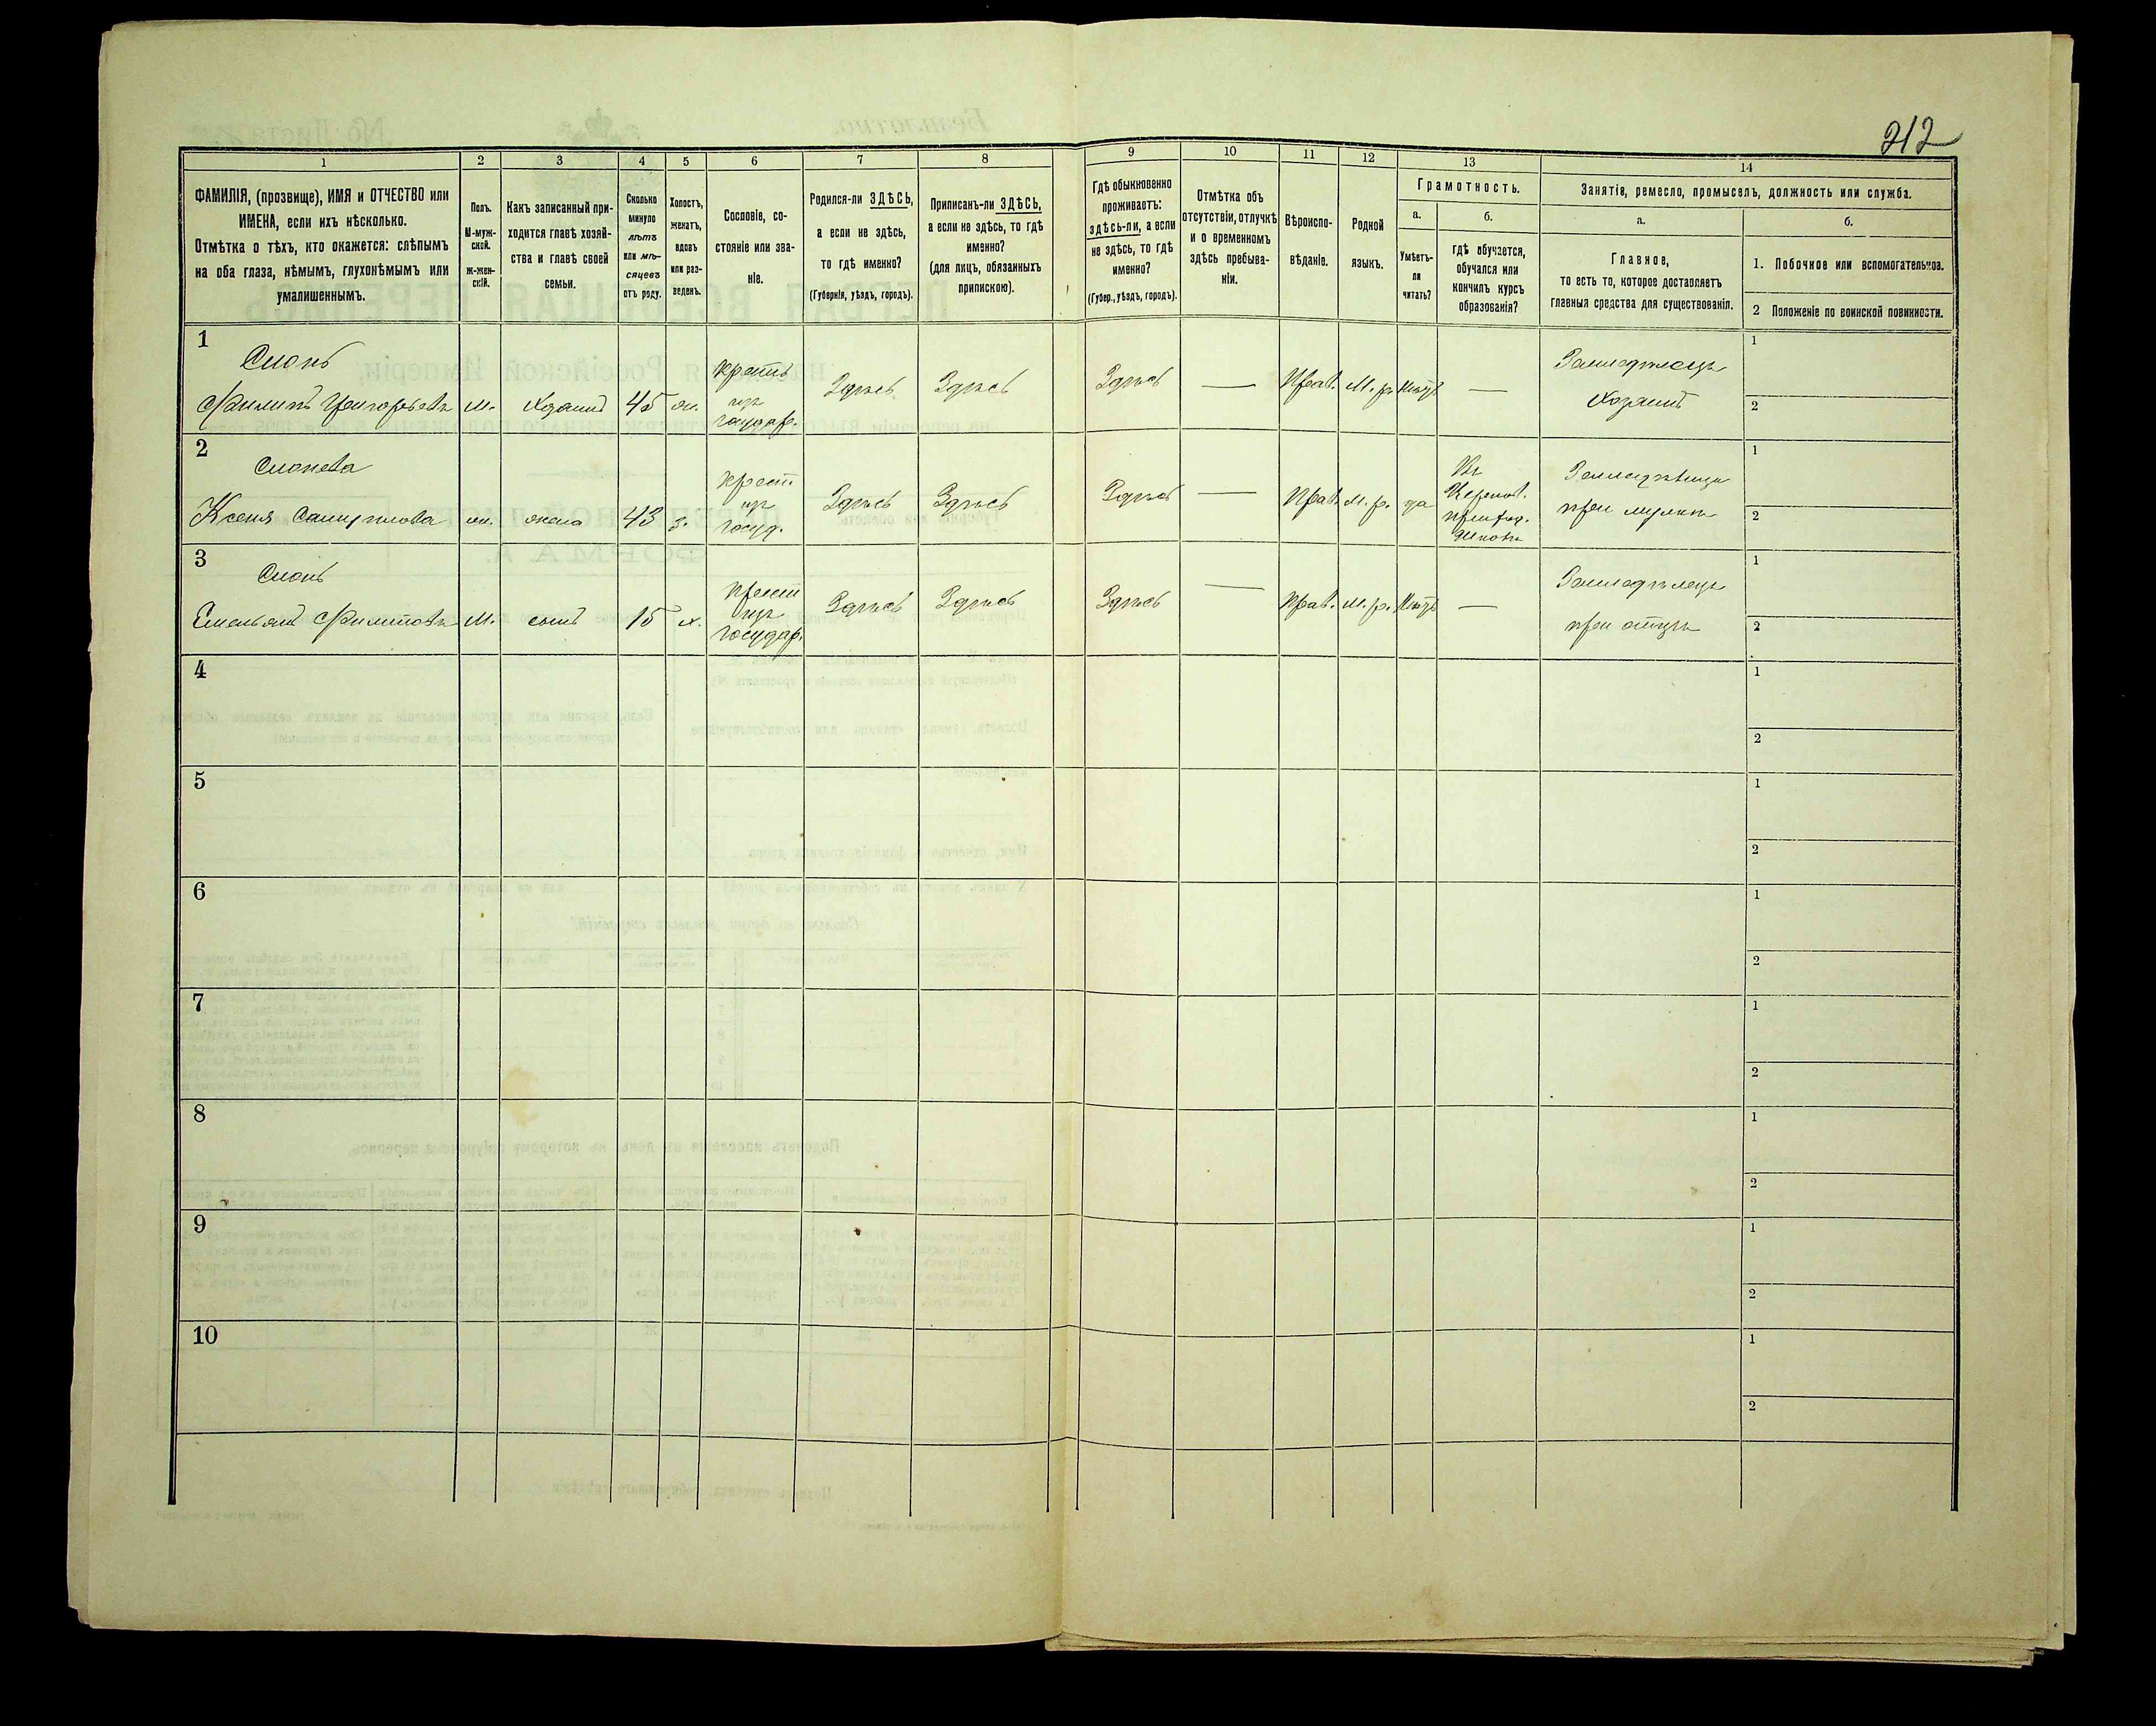 212
1
2
3
4
5
6
7
8
9
10
11
12
13
14
ФАМИЛІЯ, (прозвище), ИМЯ и ОТЧЕСТВО или
ИМЕНА, если ихъ нѣсколько.
Отмѣтка о тѣхъ, кто окажется: слѣпымъ
на оба глаза, нѣмымъ, глухонѣмымъ или
умалишеннымъ.
Полъ.
М-муж-
ской.
Ж-жен-
скій.
Какъ записанный при-
ходится главѣ хозяй-
ства и главѣ своей
семьи.
Сколько
минуло
лѣтъ
или мѣ-
сяцевъ
отъ роду.
Холостъ,
женатъ,
вдовъ
или раз-
веденъ.
Сословіе, со-
стояніе или зва-
ніе.
Родился-ли ЗДѢСЬ,
а если не здѣсь,
то гдѣ именно?
(Губернія, уѣздъ, городъ).
Приписанъ-ли ЗДѢСЬ,
а если не здѣсь, то гдѣ
именно?
(для лицъ, обязанныхъ
припискою).
Гдѣ обыкновенно
проживаетъ:
здѣсь-ли, а если
не здѣсь, то гдѣ
именно?
(Губер., уѣздъ, городъ).
Отмѣтка объ
отсутствіи, отлучкѣ
и о временномъ
здѣсь пребыва-
ніи.
Вѣроиспо-
вѣданіе.
Родной
языкъ.
Грамотность.
а.
Умѣетъ-
ли
читать?
б.
гдѣ обучается,
обучался или
кончилъ курсъ
образованія?
Занятіе, ремесло, промыселъ, должность или служба.
а.
Главное,
то есть то, которое доставляетъ
главныя средства для существованія.
б.
1. Побочное или вспомогательное.
2 Положеніе по воинской повинности.
1
Слонь
Филипъ Григорьевъ
м.
45
ж.
крест
изъ
государ.
Здѣсь
Здѣсь
Здѣсь
—
Прав.
М. р.
Нѣтъ
—
Земледѣлецъ
Хозяинъ
1
2
2
Слонева
Ксенія
жена
43
з.
крест
изъ
госуд.
Здѣсь
Здѣсь
Здѣсь
—
Прав.
М. р.
да
Земледѣлица
при мужѣ
1
2
3
Слонь
Емельянъ Филиповъ
М.
сынъ
15
х.
крест
изъ
государ.
Здѣсь
Здѣсь
Здѣсь
—
Прав.
М. р.
Нѣтъ
—
Земледѣлецъ
при отцѣ
1
2
4
1
2
5
1
2
6
1
2
7
1
2
8
1
2
9
1
2
10
1
2